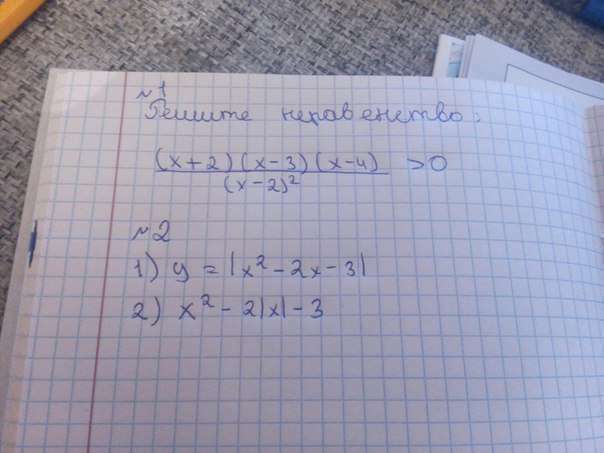 №1
Решите неравенство:
(x+2)(x-3)(x-4) >0
(x-2)²
№2
1) y = |x² - 2x - 3|
2) x² - 2|x| - 3